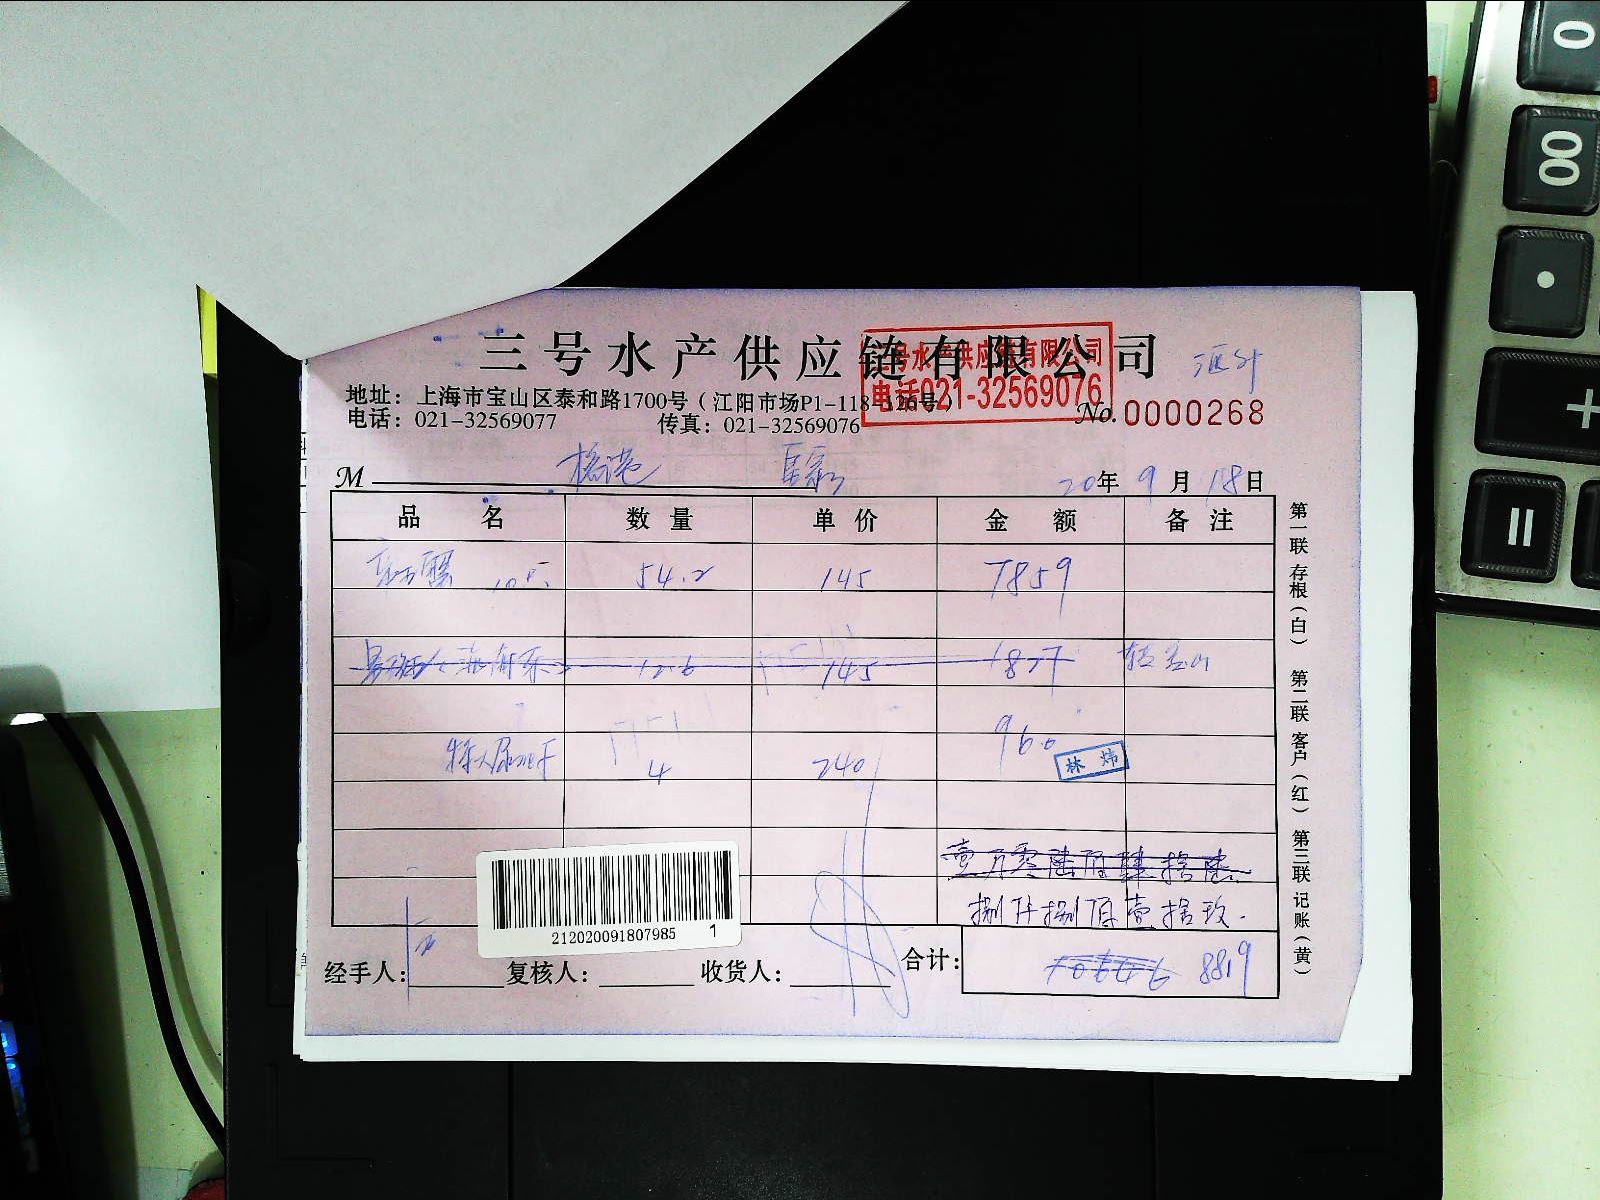 三号水产供应链有限公司
三号水产供应链有限公司
电话021-32569076
地址：上海市宝山区泰和路1700号（江阳市场P1-118-126号）
电话：021-32569077 传真：021-32569076
No.0000268
M
20年9月18日
品名 数量 单价 金额 备注
54.2 145 7859
12.6 145 1827
4 240 960
林炜
壹万零陆佰肆拾陆
捌仟捌佰壹拾玖
212020091807985 1
经手人： 复核人： 收货人： 合计： 10646 8819
第一联 存根（白） 第二联 客户（红） 第三联 记账（黄）
0
00
+
=